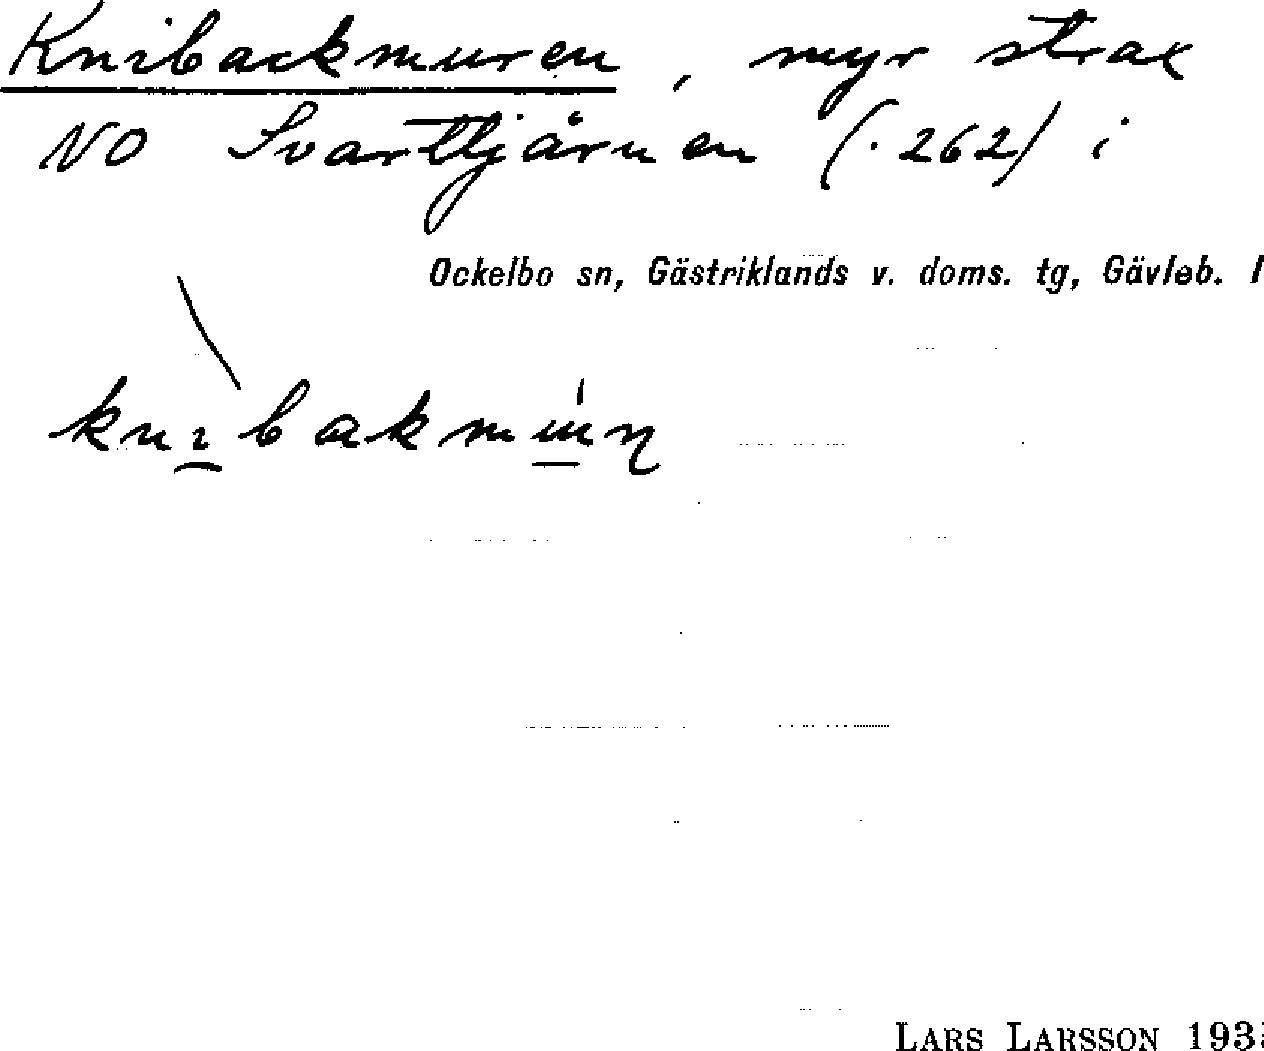 Knibackmuren, myr strax
NO Svarttjärnen (.262) i
Ockelbo sn, Gästriklands v. doms. tg, Gävleb. l
knibakmun
LARS LARSSON 193